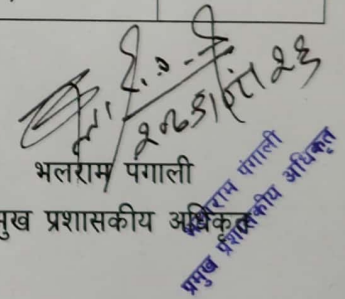 भलराम पंगाली
मुख प्रशासकीय अधिकृत
भलराम पंगाली
प्रमुख प्रशासकीय अधिकृत